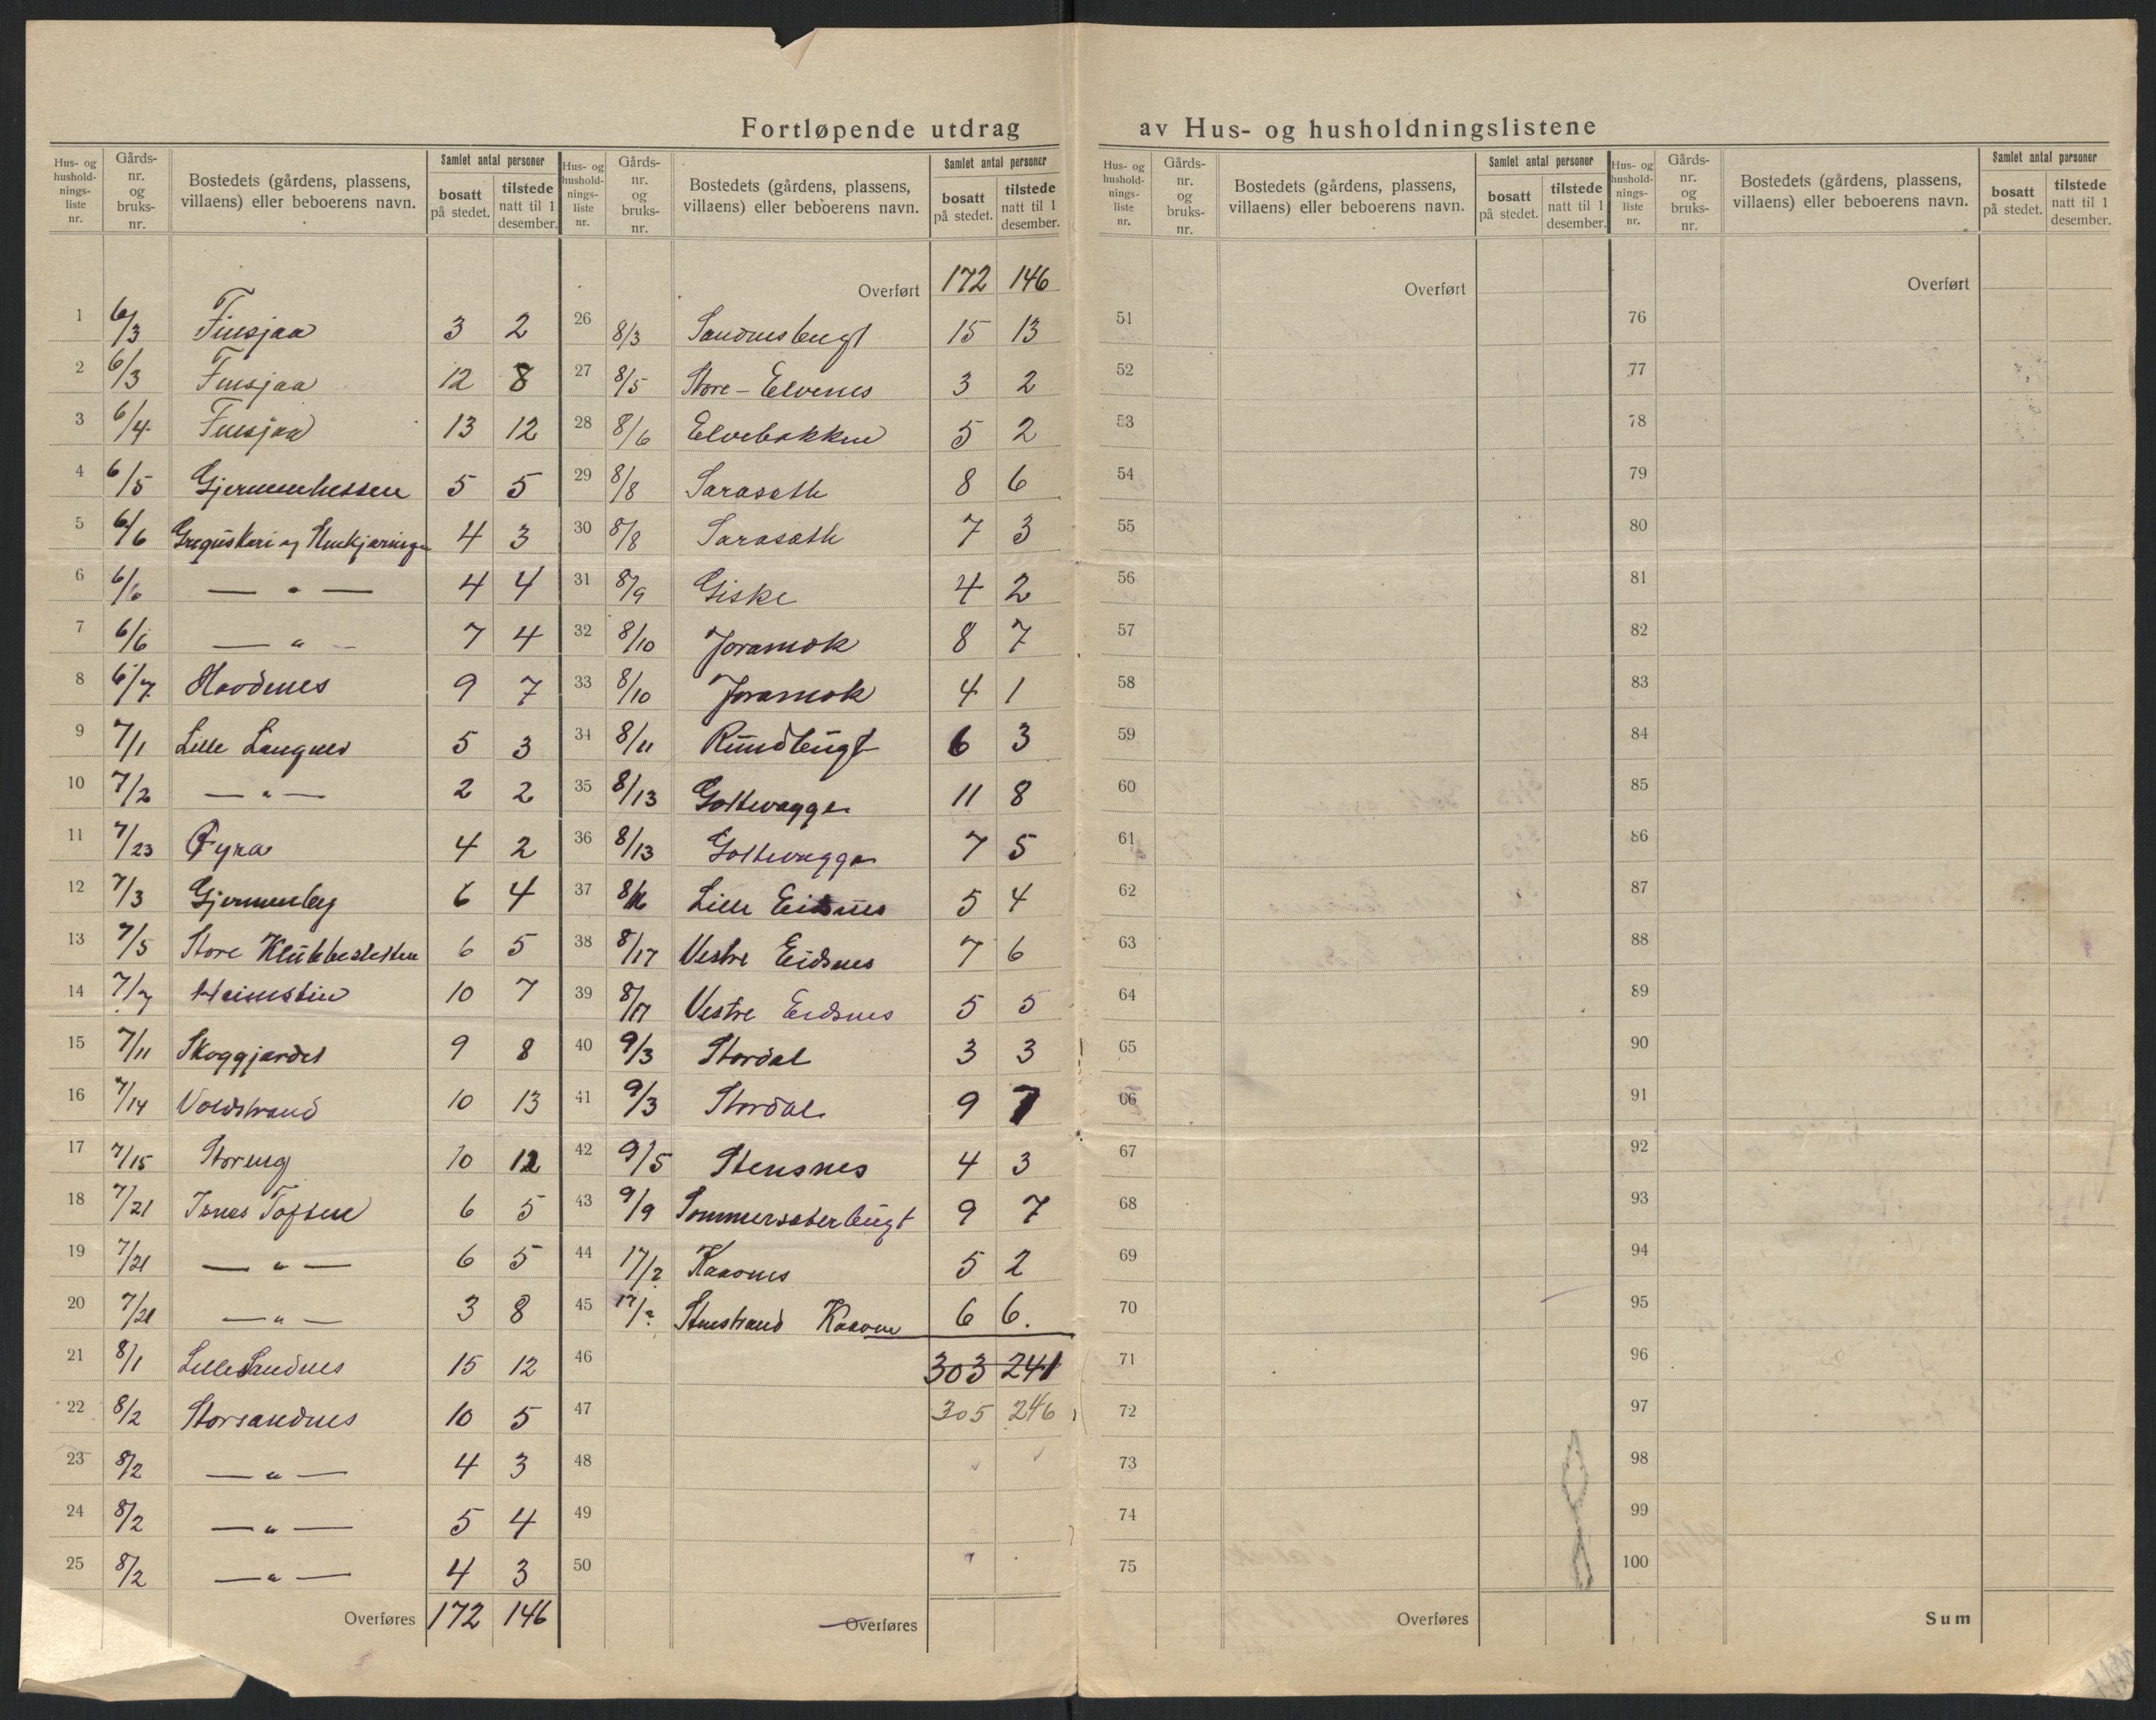 Fortløpende utdrag av Hus- og husholdningslistene
Hus- og husholdnings-liste nr. | Gårds-nr. og bruks-nr. | Bostedets (gårdens, plassens, villaens) eller beboerens navn. | Samlet antal personer bosatt på stedet. | tilstede natt til 1 desember.
1 6/3 Finsjaa 3 2
2 6/3 Finsjaa 12 8
3 6/4 Finsjaa 13 12
4 6/5 5 5
5 6/6 og 4 3
6 6/6 — " — 4 4
7 6/6 — " — 7 4
8 6/7 Havdnes 9 7
9 7/1 Lille Langnes 5 3
10 7/2 — " — 2 2
11 7/23 Øyra 4 2
12 7/3 Gjermenberg 6 4
13 7/5 Store Klubbesletten 6 5
14 7/7 Heimstin 10 7
15 7/11 Skoggjardet 9 8
16 7/14 Voldstrand 10 13
17 7/15 Storeng 10 12
18 7/21 Isnes Toften 6 5
19 7/21 — " — 6 5
20 7/21 — " — 3 8
21 8/1 Lille Sandnes 15 12
22 8/2 Storsandnes 10 5
23 8/2 — " — 4 3
24 8/2 — " — 5 4
25 8/2 — " — 4 3
Overføres 172 146
Hus- og husholdnings-liste nr. | Gårds-nr. og bruks-nr. | Bostedets (gårdens, plassens, villaens) eller beboerens navn. | Samlet antal personer bosatt på stedet. | tilstede natt til 1 desember.
Overført 172 146
26 8/3 Sandnesbugt 15 13
27 8/5 Store-Elvenes 3 2
28 8/6 Elvebakken 5 2
29 8/8 Sarasæth 8 6
30 8/8 Sarasæth 7 3
31 8/9 Giske 4 2
32 8/10 Joramok 8 7
33 8/10 Joramok 4 1
34 8/11 Rundbugt 6 3
35 8/13 Goltevagge 11 8
36 8/13 Goltevagge 7 5
37 8/16 Lille Eidsnes 5 4
38 8/17 Vestre Eidsnes 7 6
39 8/17 Vestre Eidsnes 5 5
40 9/3 Stordal 3 3
41 9/3 Stordal 9 7
42 9/5 Stensnes 4 3
43 9/9 Sommersæterbugt 9 7
44 17/2 Kaavnes 5 2
45 17/2 Stenstrand Kaavnes 6 6.
46 303 241
47 305 246
48
49
50
Overføres
Hus- og husholdnings-liste nr. | Gårds-nr. og bruks-nr. | Bostedets (gårdens, plassens, villaens) eller beboerens navn. | Samlet antal personer bosatt på stedet. | tilstede natt til 1 desember.
Overført
51
52
53
54
55
56
57
58
59
60
61
62
63
64
65
66
67
68
69
70
71
72
73
74
75
Overføres
Hus- og husholdnings-liste nr. | Gårds-nr. og bruks-nr. | Bostedets (gårdens, plassens, villaens) eller beboerens navn. | Samlet antal personer bosatt på stedet. | tilstede natt til 1 desember.
Overført
76
77
78
79
80
81
82
83
84
85
86
87
88
89
90
91
92
93
94
95
96
97
98
99
100
Sum